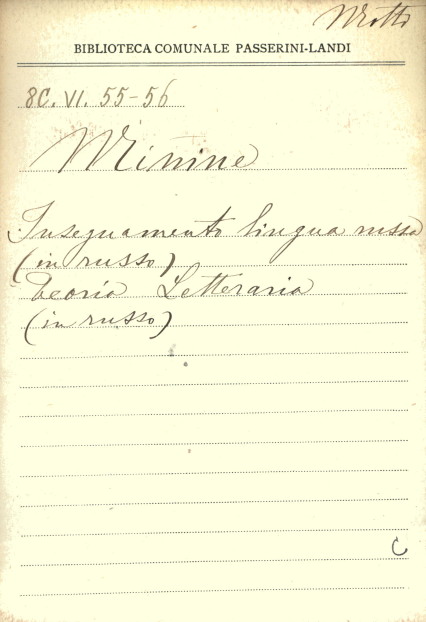 Motto
BIBLIOTECA COMUNALE PASSERINI-LANDI
8C. VI. 55-56
Minine
Insegnamento lingua russa
(in russo)
Teoria Letteraria
(in russo)
C